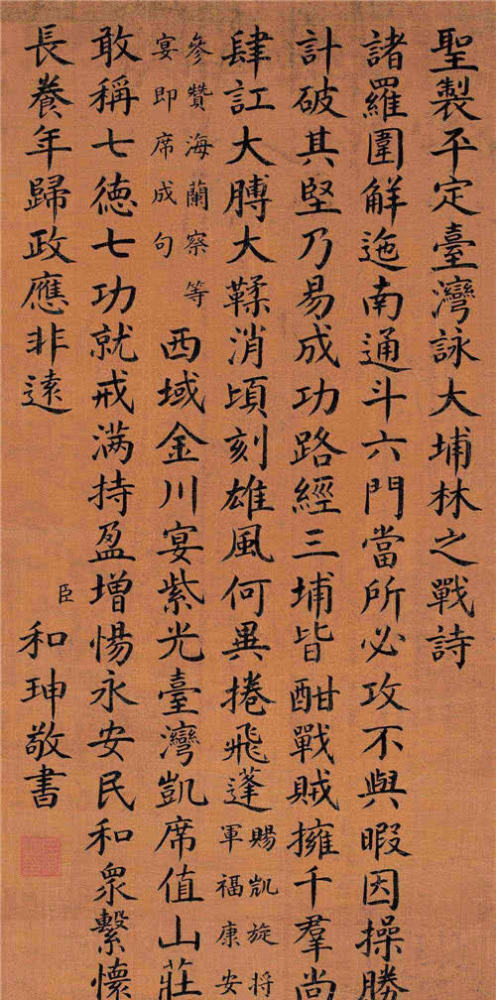 聖製平定臺灣詠大埔林之戰詩
諸羅圍解迤南通斗六門當所必攻不與暇因操勝
計破其堅乃易成功路經三埔皆酣戰賊擁千羣尚
肆訌大膊大鞣消頃刻雄風何異捲飛蓬
賜凱旋将
軍福康安
參贊海蘭察等
宴即席成句
西域金川宴紫光臺灣凱席值山莊
敢稱七徳七功就戒满持盈增惕永安民和衆繫懷
長養年歸政應非遠
臣和珅敬書